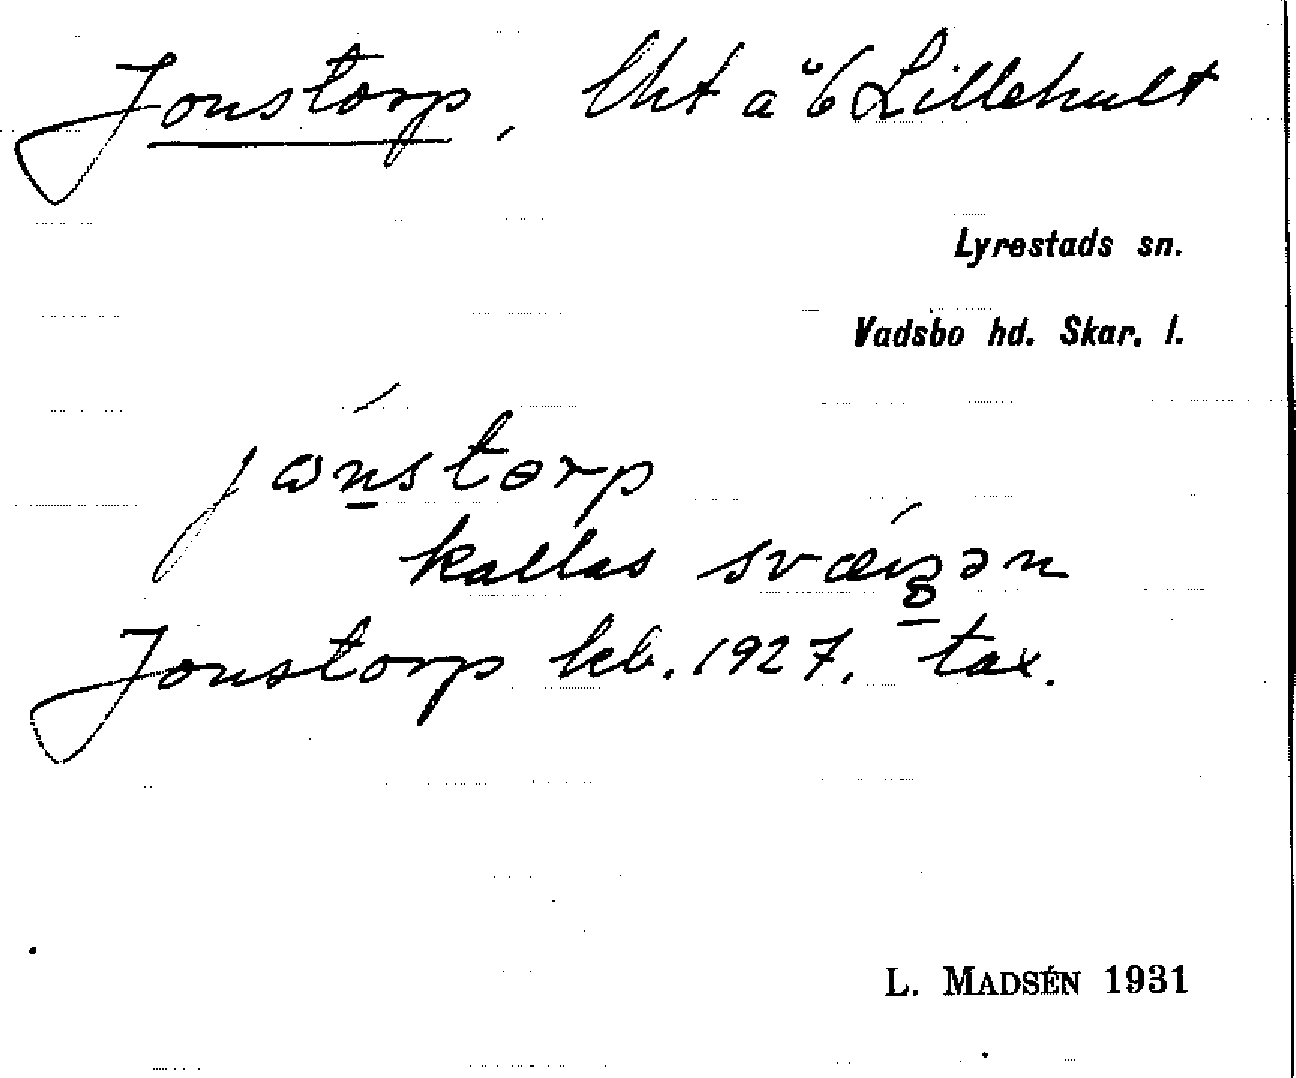 Jonstorp, lht å Lillehult
Lyrestads sn.
Vadsbo hd. Skar. l.
jɷ́nstorp
kallas
Jonstorp kb. 1927. tax.
L. MADSÉN 1931